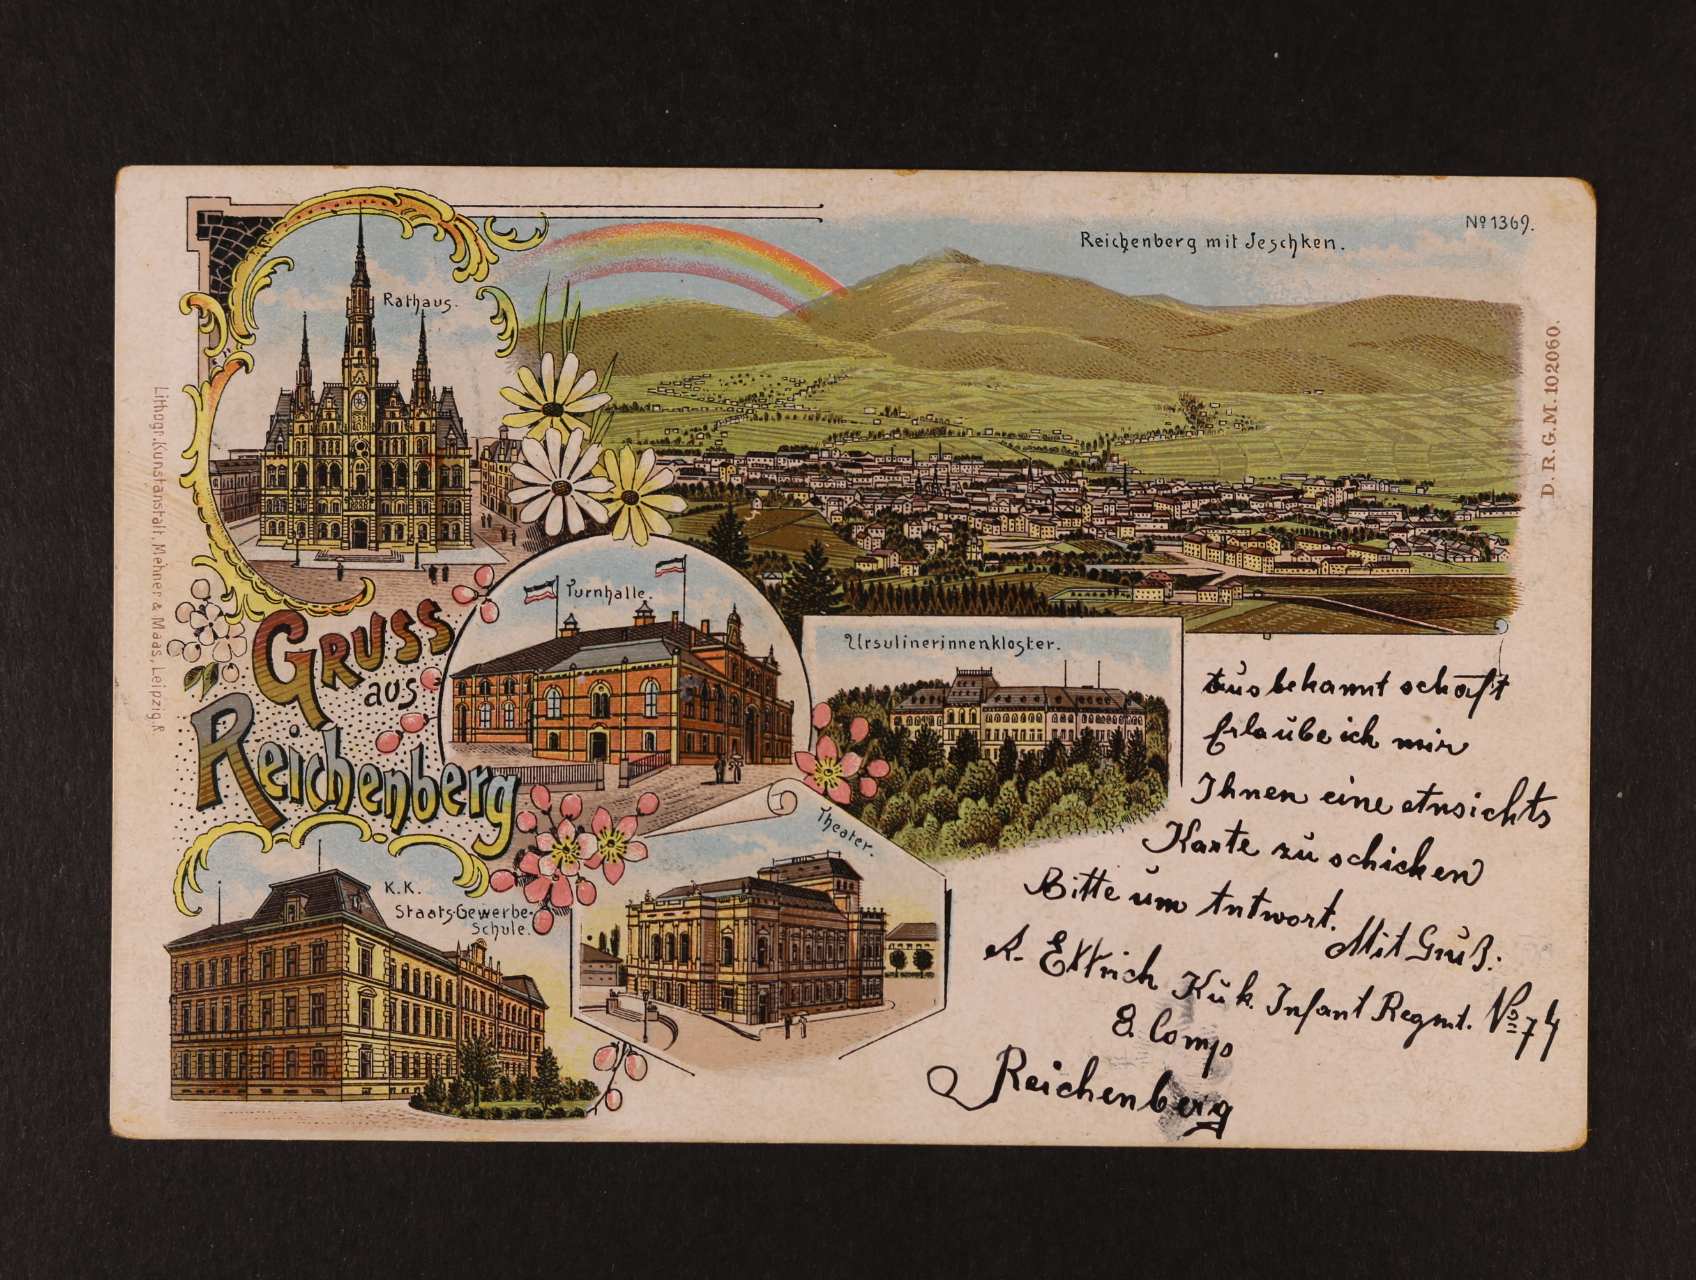 Nº 1369.
Reichenberg mit Jeschken.
Rathaus.
D. R. G. M. 102060.
Lithogr. Kunstanstalt, Mehner & Maas, Leipzig.R
Turnhalle.
GRUSS
aus
Reichenberg
Ursulinerinnenkloster.
Theater.
K.K.
Staats-Gewerbe-
Schule.
Aus bekannt schaft
Erlaube ich mir
Ihnen eine Ansichts
Karte zu schicken
Bitte um Antwort.
Mit Gruß.
A. Ettrich Kuk. Infant Regmt. Nº 74
8. Comp
Reichenberg